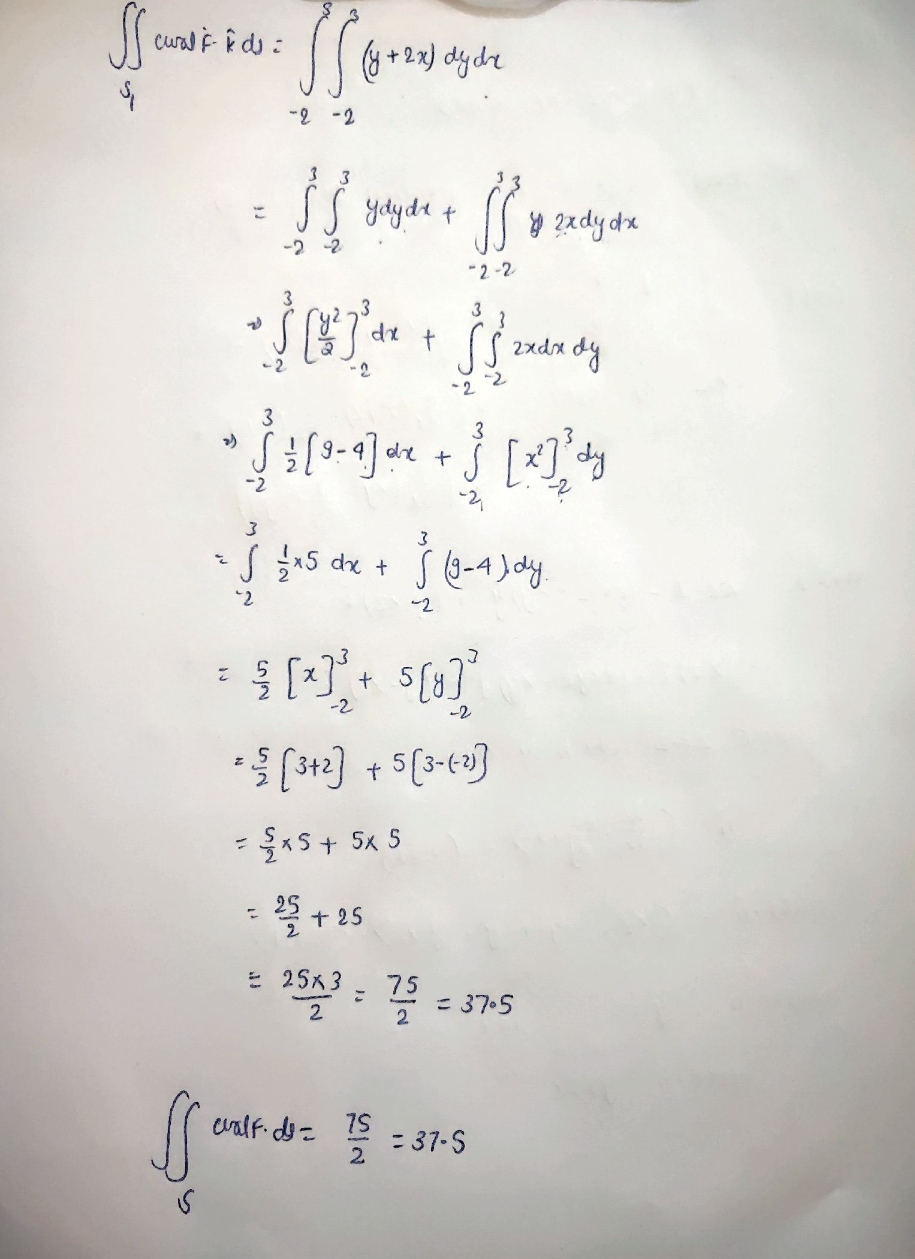 ∬_{S_1} curl F. k̂ ds = ∫_{-2}^{3} ∫_{-2}^{3} (y + 2x) dy dx
= ∫_{-2}^{3} ∫_{-2}^{3} y dy dx + ∫_{-2}^{3} ∫_{-2}^{3} 2x dy dx
⇒ ∫_{-2}^{3} [y²/2]_{-2}^{3} dx + ∫_{-2}^{3} ∫_{-2}^{3} 2x dx dy
⇒ ∫_{-2}^{3} 1/2 [9-4] dx + ∫_{-2}^{3} [x²]_{-2}^{3} dy
= ∫_{-2}^{3} 1/2 x5 dx + ∫_{-2}^{3} (9-4) dy.
= 5/2 [x]_{-2}^{3} + 5[y]_{-2}^{3}
= 5/2 [3+2] + 5[3-(-2)]
= 5/2 x 5 + 5x 5
= 25/2 + 25
= 25x3/2 = 75/2 = 37.5
∬_{S} curl F. ds = 75/2 = 37.5